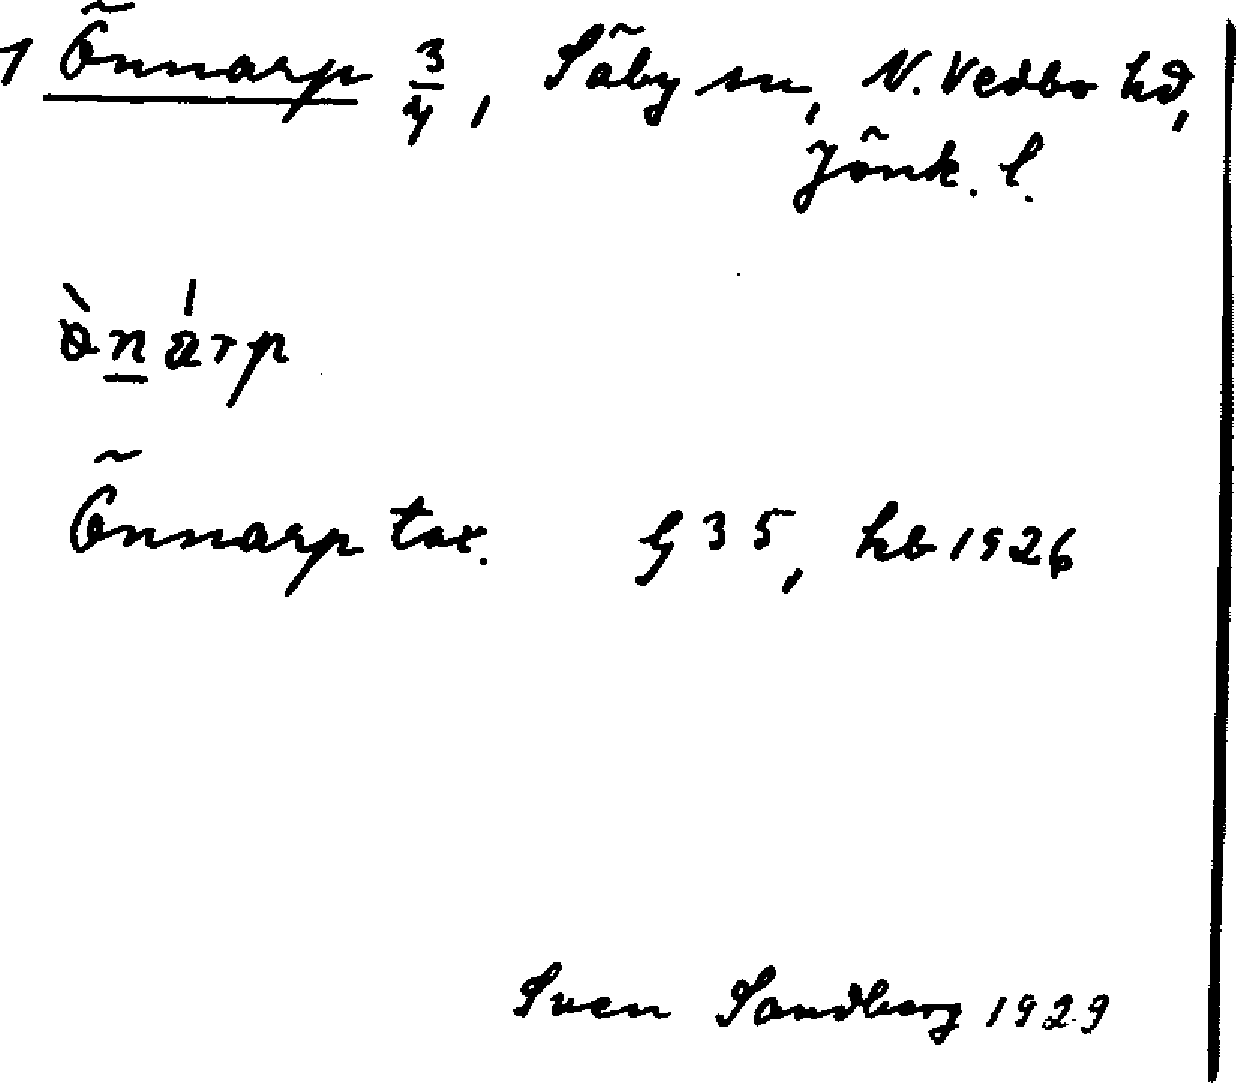 1 Önnarp 3/4, Säby sn, N. Vedbo hd,
Jönk. l.
ònárp
Önnarp tax. G 35, hb 1926
Sven Sandberg 1929